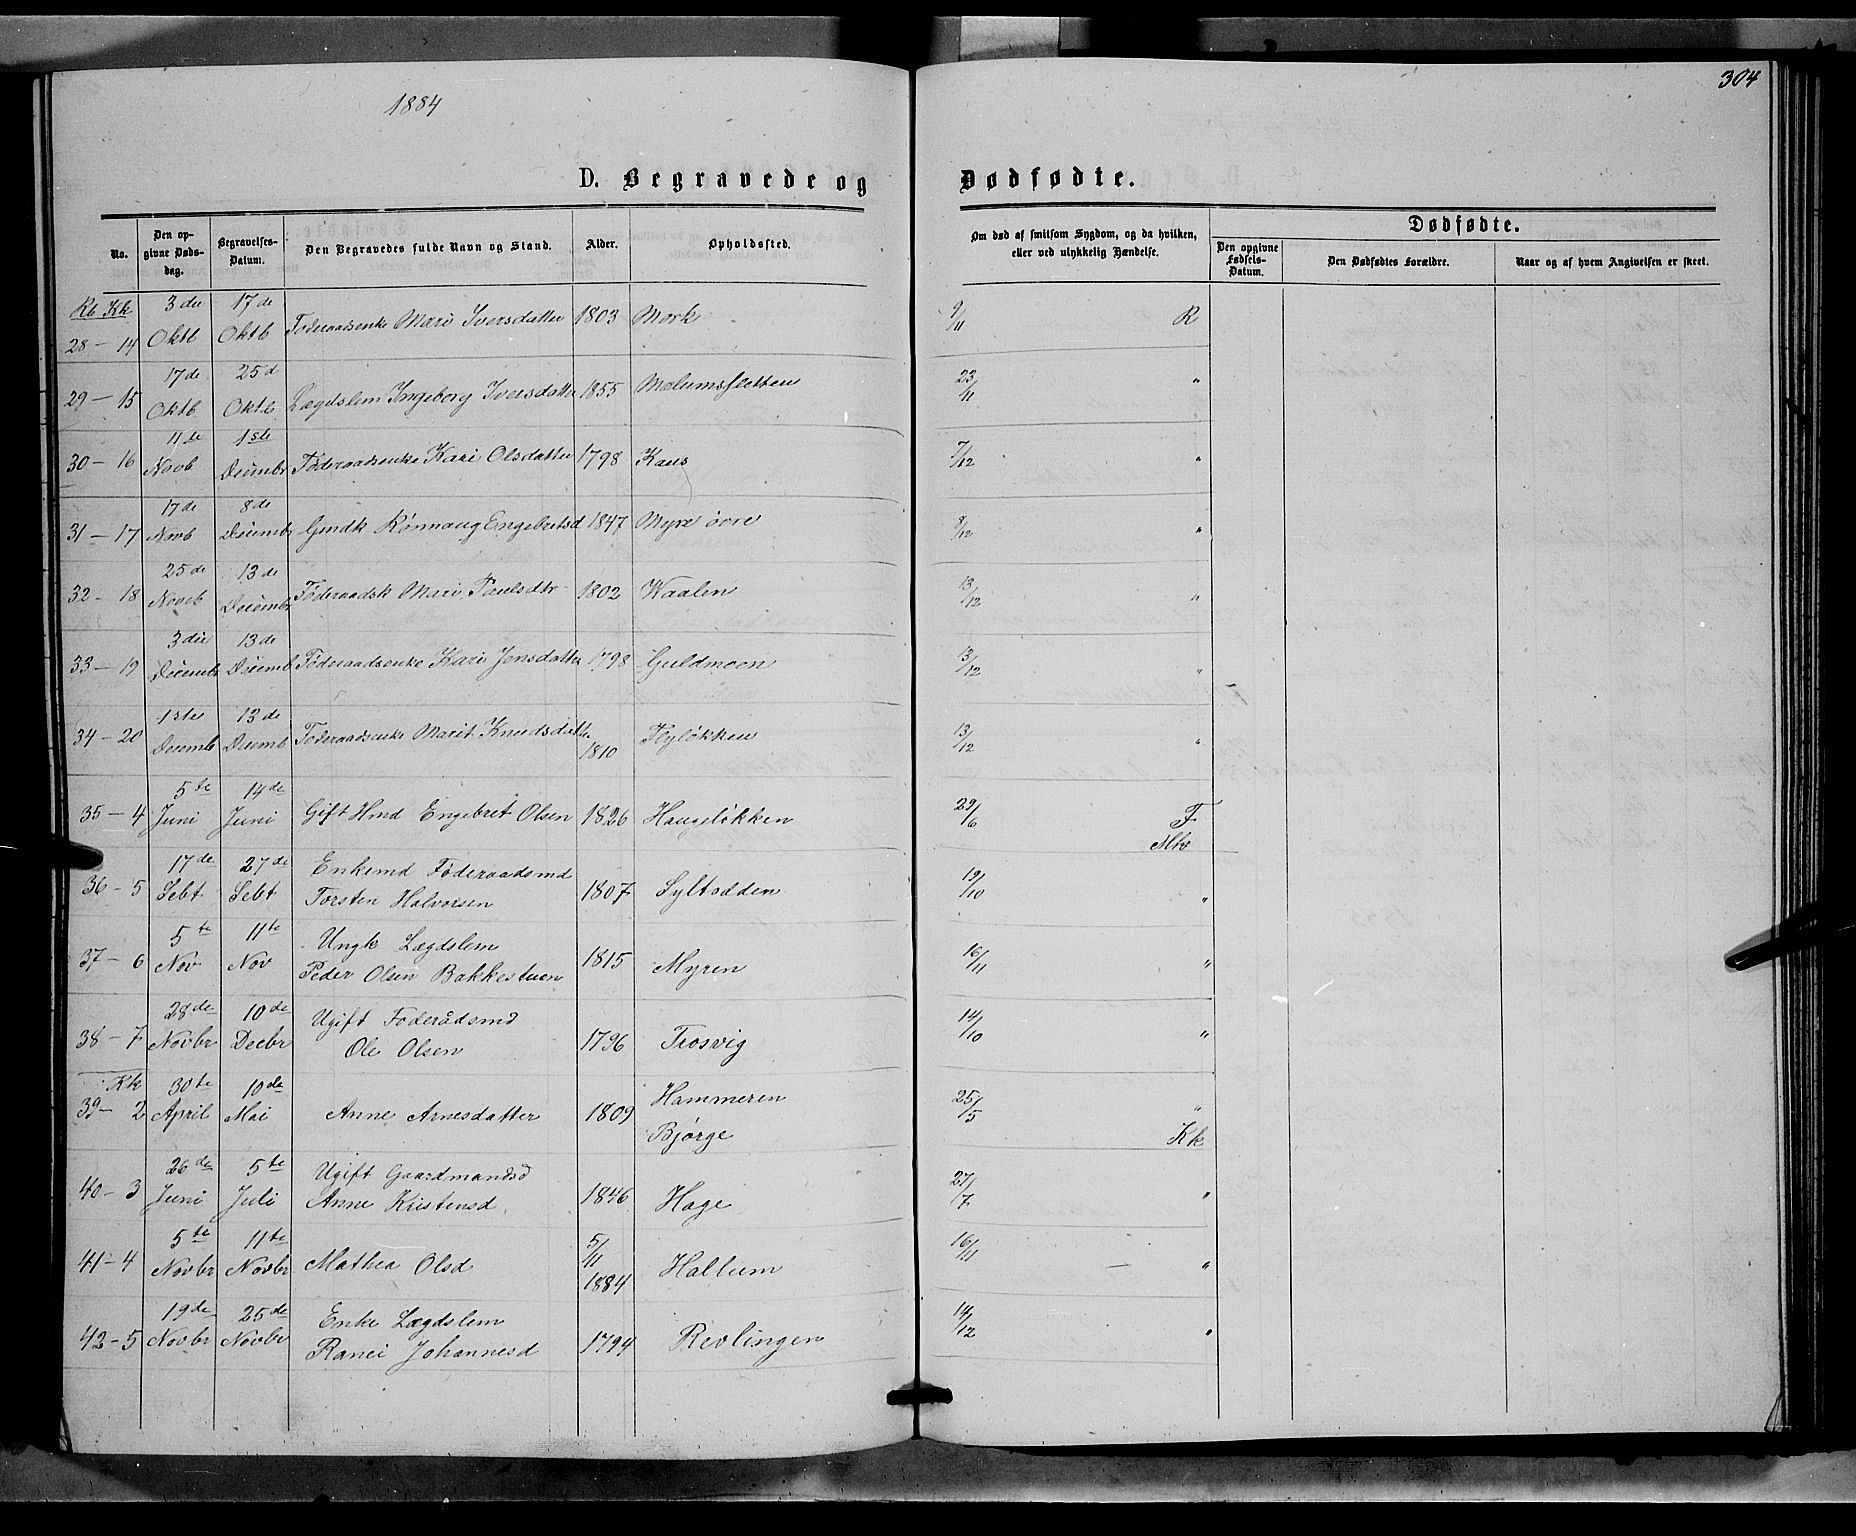 1884
304
D. Begravede og Dødfødte.
No.
Den opgivne Dødsdag.
Begravelses-Datum.
Den Begravedes fulde Navn og Stand.
Alder.
Opholdssted.
Om død af smitsom Sygdom, og da hvilken, eller ved ulykkelig Hændelse.
Dødfødte.
Den opgivne Fødsels-Datum.
Den Dødfødtes Forældre.
Naar og af hvem Angivelsen er skeet.
Rb Kk 3die 17de
28 - 14 Oktb Oktb Føderaadsenke Mari Iversdatter 1803 Mork 9/11 R
17de 25d
29 - 15 Oktb Oktb Lægdslem Ingeborg Iversdatter 1855 Melumsfletten 23/11 "
11te 1ste
30 - 16 Novb Decembr Føderaadsenke Kari Olsdatter 1798 Kaus 7/12 "
17de 8de
31 - 17 Novb Decembr Gmdk Rønnaug Engebretsd 1847 Myre övre 8/12 "
25de 13de
32 - 18 Novb Decembr Føderaadsk Mari Paulsdtr 1802 Waalen 13/12 "
3die 13de
33 - 19 Decembr Decemb Føderaadsenke Kari Jensdatter 1798 Guldmoen 13/12 "
1ste 13de
34 - 20 Decemb Decemb Føderaadsenke Marit Knudsdatter 1810 Flyløkken 13/12 "
5te 14de
35 - 4 Juni Juni Gift Hmd Engebret Olsen 1826 Haugeløkken 29/6 F
17de 27de Enkemd Føderaadsmd
36 - 5 Sebt Sebt Torsten Halvorsen 1807 Syltsødden 19/10 "
5te 11te Ungk Lægdslem
37 - 6 Nov Nov Peder Olsen Bakkestuen 1815 Myren 16/11 "
28de 10de Ugift Foderådsmd
38 - 7 Novbr Decbr Ole Olsen 1796 Trosvig 14/10 "
Kk 30te 10de Hammeren
39 - 2 April Mai Anne Arnesdatter 1809 Bjørge 25/5 " Kk
26de 5te Ugift Gaardmandsd
40 - 3 Juni Juli Anne Kristensd 1846 Hage 27/7 "
5te 11te
41 - 4 Novbr Novbr Mathea Olsd 5/11 1884 Hallum 16/11 "
19de 25de Enke Lægdslem
42 - 5 Novbr Novbr Ranei Johannesd 1794 Revlingen 14/12 "